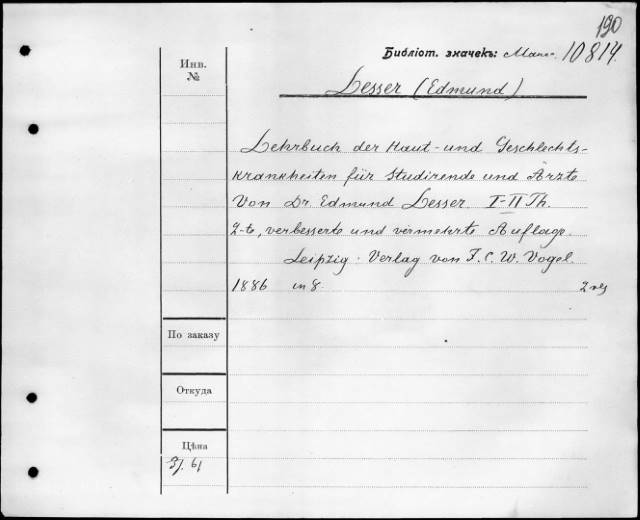 190
Библіот. значекъ: 10814.
Инв.
№
Lesser (Edmund)
Lehrbuch der Haut- und Geschlechts-
krankheiten für Studirende und Ärzte
Von Dr. Edmund Lesser I-II Th.
2-te, verbesserte und vermehrte Auflage.
Leipzig. Verlag von F. C. W. Vogel.
1886 in 8
По заказу
Откуда
Цѣна